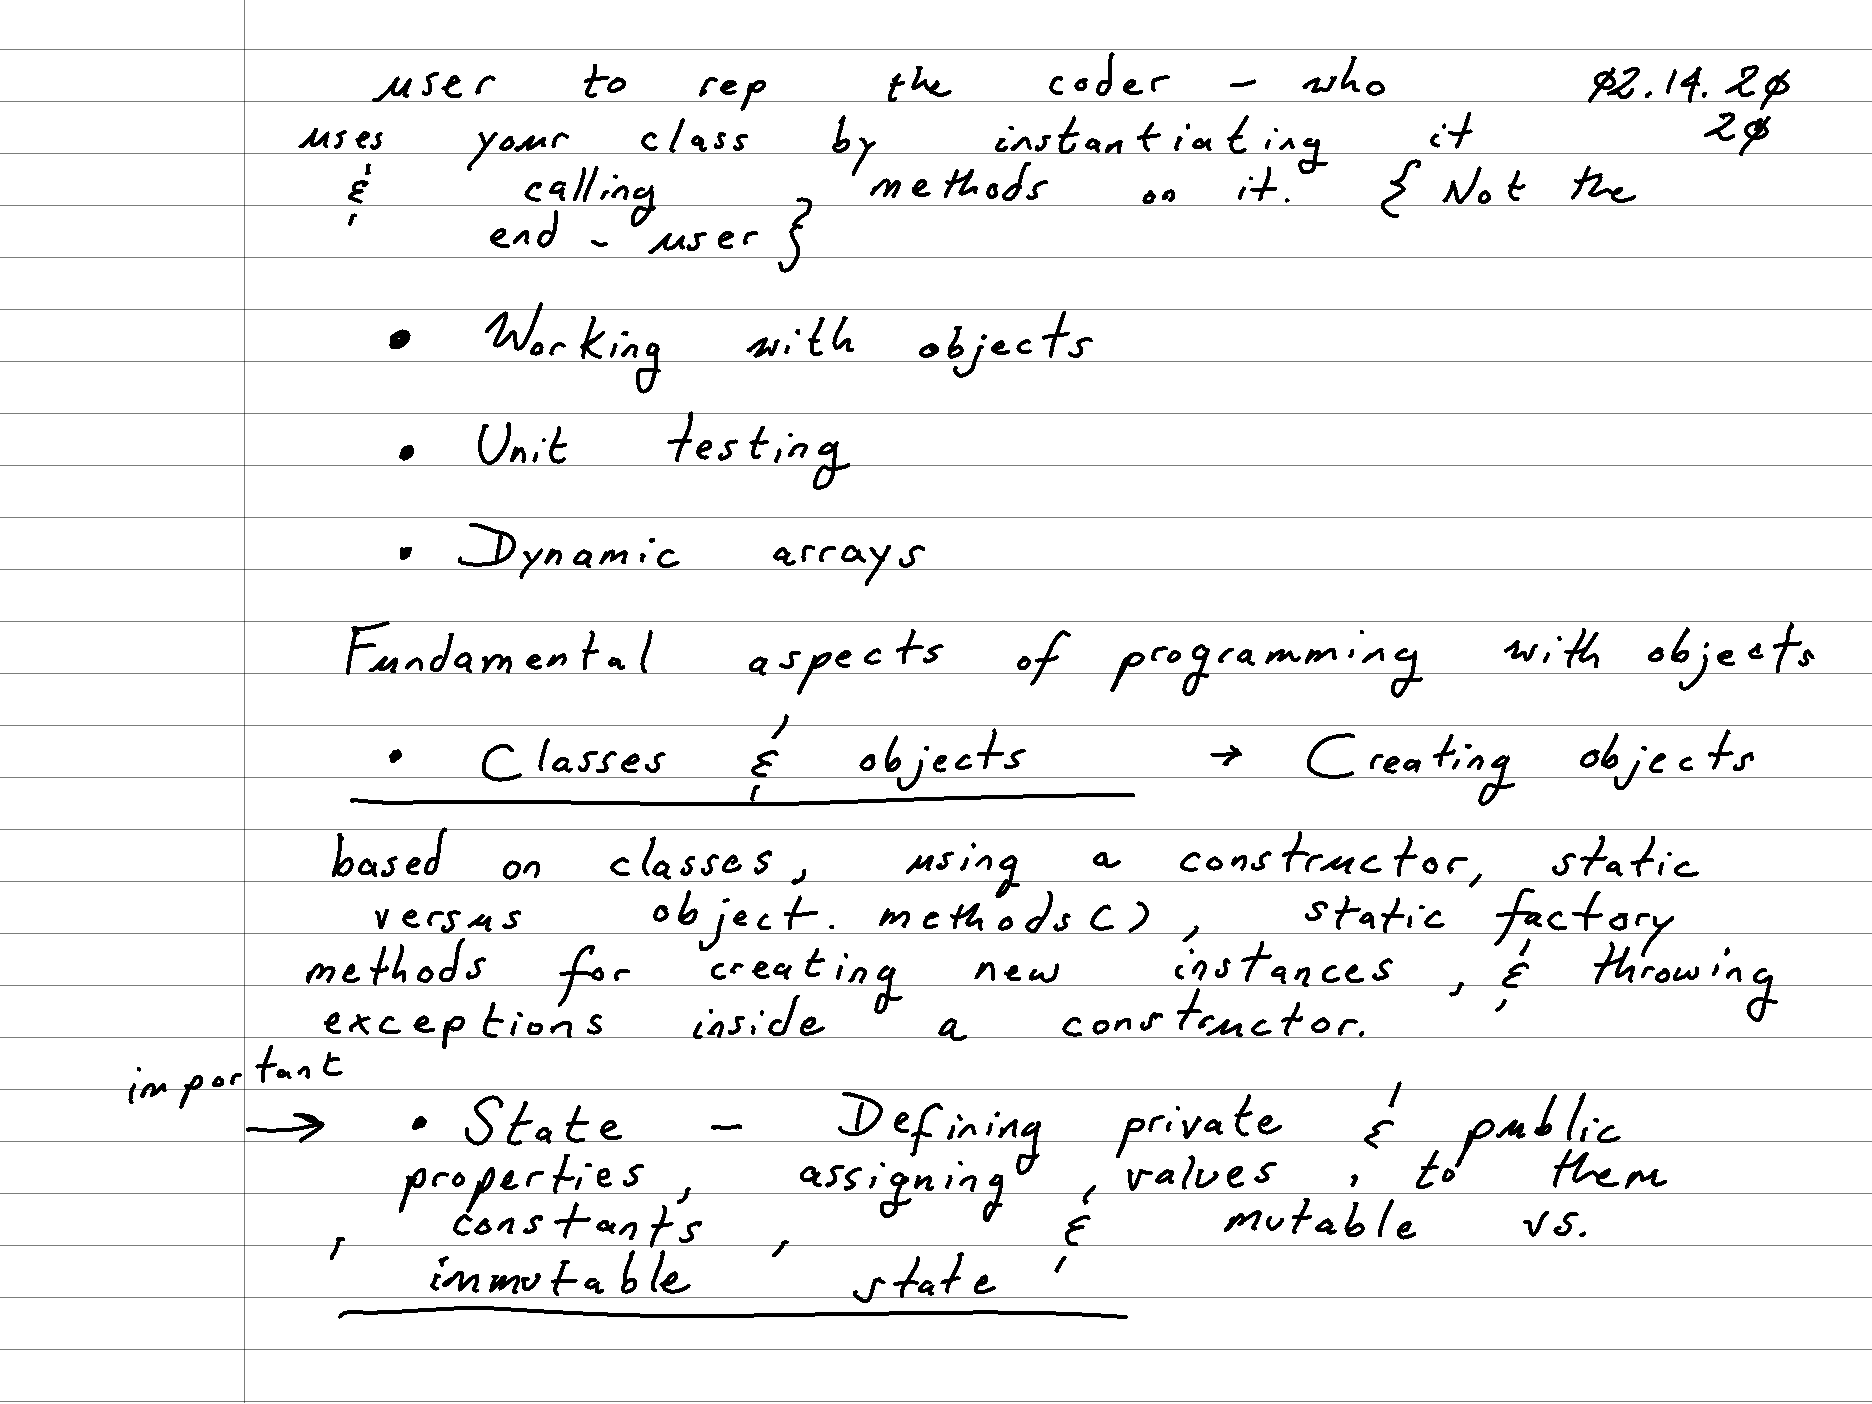 user to rep the coder - who 02.14.20
uses your class by instantiating it 20
& calling methods on it. { Not the
end - user }
• Working with objects
• Unit testing
• Dynamic arrays
Fundamental aspects of programming with objects
• Classes & objects → Creating objects
based on classes, using a constructor, static
versus object. methods(), static factory
methods for creating new instances, & throwing
exceptions inside a constructor.
important
→ • State - Defining private & public
properties, assigning values to them
, constants, & mutable vs.
immutable state